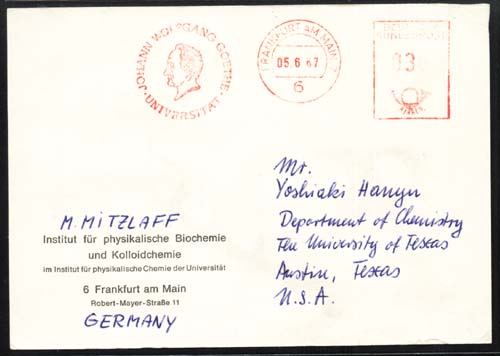 JOHANN WOLFGANG GOETHE
UNIVERSITÄT
FRANKFURT AM MAIN
05.6.67
6
DEUTSCHE
BUNDESPOST
M. MITZLAFF
Institut für physikalische Biochemie
und Kolloidchemie
im Institut für physikalische Chemie der Universität
6 Frankfurt am Main
Robert-Mayer-Straße 11
GERMANY
Mr.
Yoshiaki Hanyu
Department of Chemistry
The University of Texas
Austin, Texas
U.S.A.